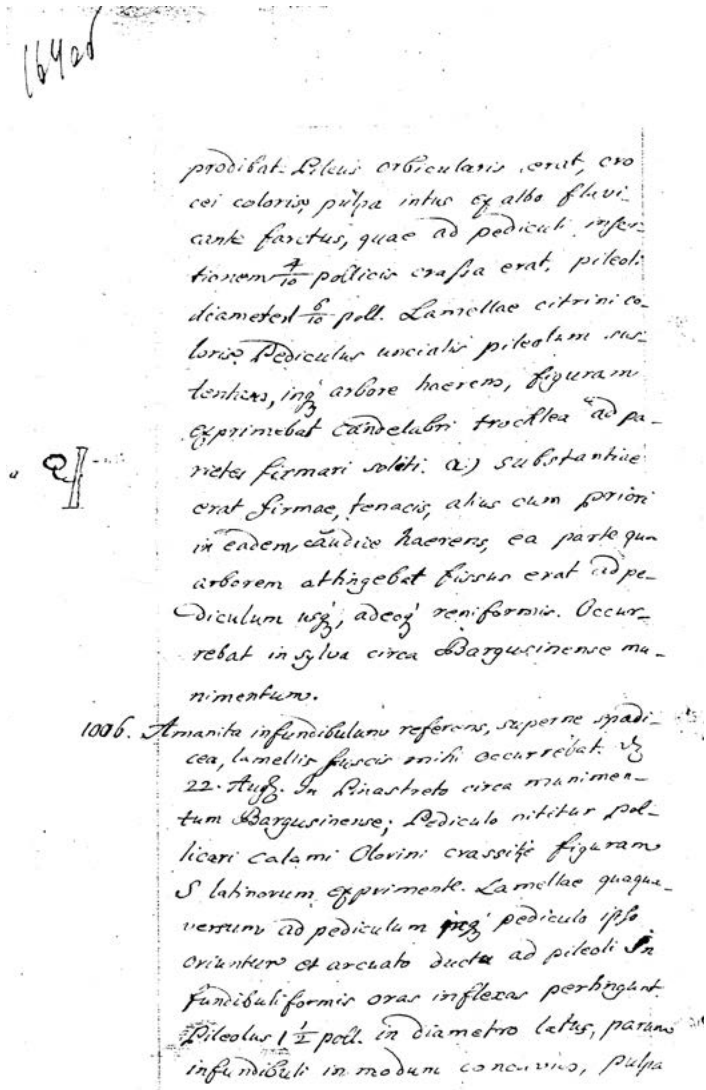 164 об
prodibat. Pileus orbicularis erat, cro
cei coloris, pulpa intus ex albo flavi-
cante farctus, quae ad pediculi inser-
tionem 4/10 pollicis crassa erat, pileoli
diameter 6/10 poll. Lamellae citrini co-
loris. Pediculus uncialis pileolum sus-
tentans, inq arbore haerens, figuram
exprimebat Candelabri trochlea ad pa-
rietes firmari soliti. a) substantiae
erat firmae, tenacis, alius cum priori
in eadem caudice haerens, ea parte qua
arborem attingebat fissus erat ad pe-
diculum usq, adeoq reniformis. Occur-
rebat in sylva circa Bargusinense mu-
nimentum.
1006. Amanita infundibulum referens, superne spadi-
cea, lamellis fuscis mihi occurrebat
22. Aug. In Pinastreto circa munimen-
tum Bargusinense; Pediculo nititur pol-
licari calami Olorini crassitie figuram
S latinorum exprimente. Lamellae quaqua-
versum ad pediculum inq pediculo ipso
oriuntur et arcuato ductu ad pileoli In
fundibuliformis oras inflexas pertingunt.
Pileolus 1 1/2 poll. in diametro latus, parum
infundibuli in modum concavus, pulpa